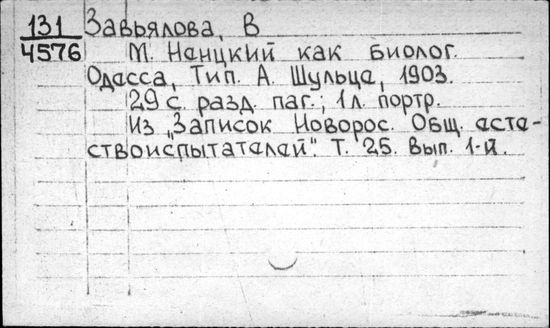 131
4576
Завьялова, В
М. Ненцкий как биолог.
Одесса, Тип. А. Шульце, 1903.
29 с. разд. паг.; 1 л. портр.
Из „Записок Новорос. Общ. есте-
ствоиспытателей". Т. 25. Вып. 1-й.